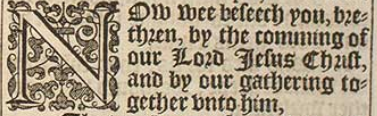 NOw wee beseech you, bre-
thren, by the comming of
our Lord Jesus Christ,
and by our gathering to-
gether vnto him,